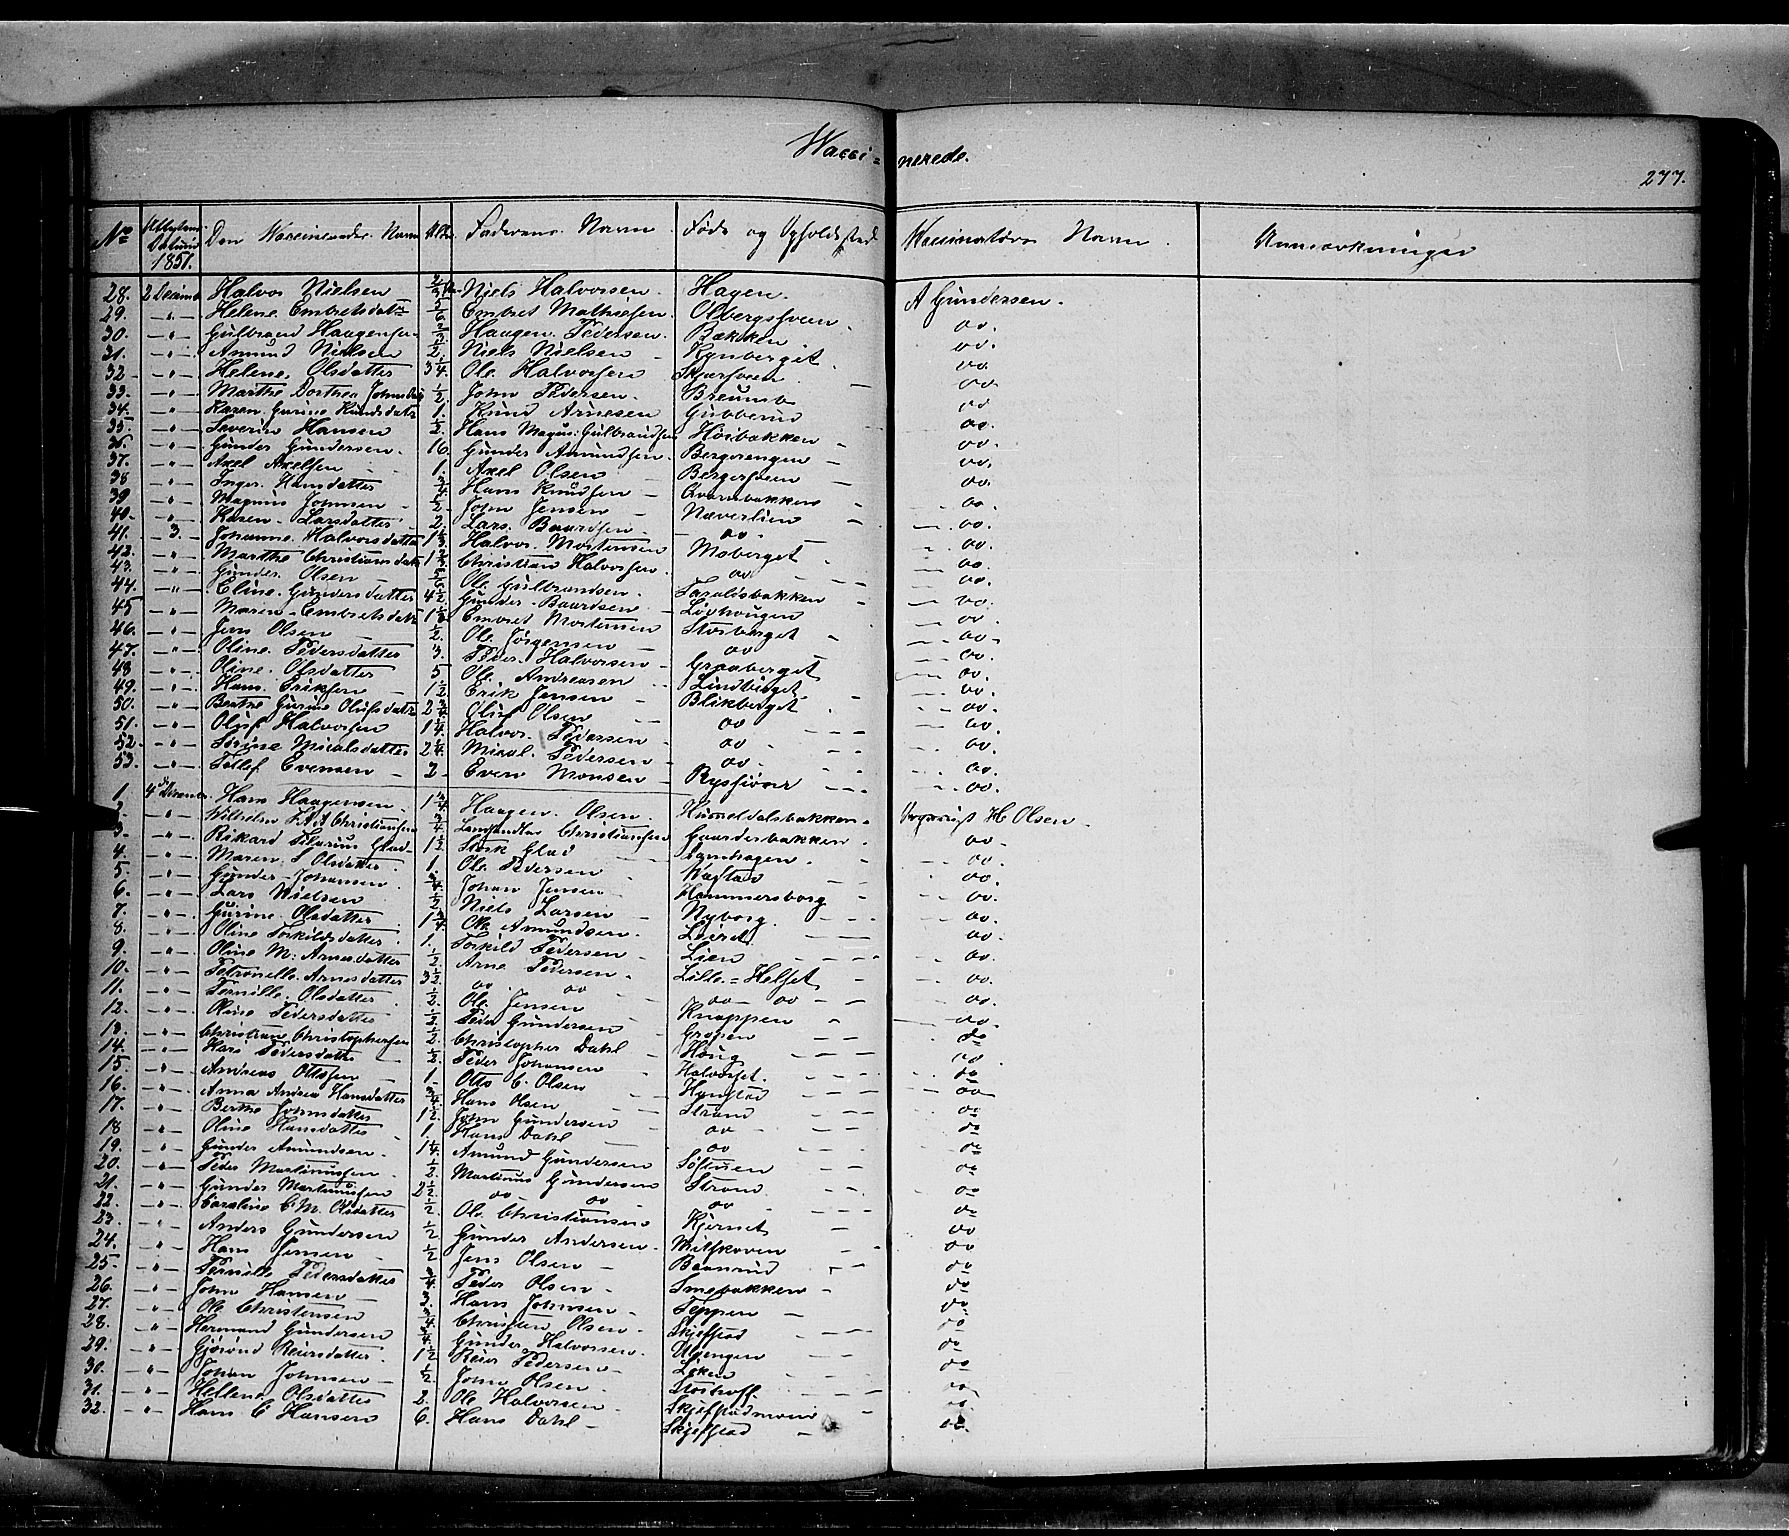 Wacci=nerede.
277.
No Attestens Datum 1851. Den Vaccineredes Navn Alder Faderens Navn Føde og Opholdssted Vaccinatørens Navn Anmærkninger
28. 2 Decemb Halvor Nielsen Niels Halvorsen Hagen. A Gundersen.
29. -"- Helene Embretsdatter 5/6 Embret Mathiesen Olbergsveen do.
30. -"- Gulbrand Haagensen Haagen Pedersen Bækken do.
31. -"- Amund Nielsen 1/2 Niels Nielsen Kynberget do.
32 -"- Helene Olsdatter 3 1/4 Ole Halvorsen do.
33. -"- Marthe Dorthea Johnsdatter 1/2 John Pedersen do.
34. -"- Karen Gurine Knudsdatter 1. Knud Arnesen Gubberud do.
35. -"- Severin Hansen 1/2. Hans Magnus Gulbrandsen do.
36. -"- Gunder Gundersen. 16. Gunder Amundsen. Bergerengen do.
37. -"- Axel Axelsen 1. Axel Olsen Bergersveen do.
38 -"- Inger Hansdatter 3/4 Hans Knudsen Qvernbakken do.
39 -"- Magnus Johnsen 1/2 John Jensen Næverlien do.
40. -"- Karen Larsdatter 2. Lars Baardsen do do.
41. 3. Johanne Halvorsdatter Halvor Mortensen Moberget do.
42. -"- Marthe Christiansdatter Christian Halvorsen do do.
43. -"- Gunder Olsen 5/6 Ole Gulbrandsen Taraldsbakken do.
44. -"- Eline Gundersdatter 4 1/2 Gunder Baardsen Løvhaugen do.
45 -"- Maren Embretsdatter Embret Mortensen Storberget do.
46. -"- Jens Olsen 1/2. Ole Jørgensen do do.
47. -"- Oline Pedersdatter 3. Peder Halvorsen Graaberget do.
48 -"- Oline Olsdatter 5 Ole Andreasen Lindberget do.
49. -"- Hans Eriksen 1 1/2 Erik Jensen Blikberget do.
50. -"- Berthe Gurine Olufsdatter 2 3/4 Oluf Olsen do do.
51. -"- Oluf Halvorsen 1 1/4 Halvor Pedersen do do.
52. -"- Sirine Micalsdatter 2 1/4 Micael Pedersen do do.
53. -"- Tollef Evensen 2 Even Monsen do.
1. 4de Decembr. Hans Haagensen 1 3/4 Haagen Olsen H Olsen
2. -"- Wilhelm Christiansen 3/4 Christiansen Gaardsbakken do
3. -"- Rikard Glad 1 1/2 Glad do
4. -"- Maren S Olsdatter 1. Ole Pedersen do.
5. -"- Gunder Johansen 3/4 Johan Jensen Hammersborg do.
6. -"- Lars Nielsen 1/2 Niels Larsen Nyborg do.
7. -"- Gurine Olsdatter 1 3/4 Ole Amundsen. Leiret do.
8. -"- Oline Torkildsdatter 1. Torkild Pedersen Lien do.
9. -"- Oline M. Arnesdatter 1/2 Arne Pedersen Lille=Helset do.
10. -"- Petronelle Arnesdatter 3 1/2 do do do do do.
11. -"- Pernille Olsdatter 1/2 Ole Jensen Knappen do.
12. -"- Oline Pedersdatter 1/2 Peder Gundersen do
13. -"- Christian Christophersen 1/2. Christopher Dahl Houg do
14. -"- Kari Pedersdatter 1/2 Peder Johansen Halvorset. do
15. -"- Andreas Ottosen 1. Otto C. Olsen Hynstad do
16. -"- Anna Andrea Hansdatter 3/4 Hans Olsen Strand do
17. -"- Berthe Johnsdatter 1 1/2. John Gundersen do do
18 -"- Oline Hansdatter 1. Hans Dahl do do
19. -"- Gunder Amundsen. 1 1/4. Amund Gundersen do
20. -"- Peder Martinussen 1/2 Martinus Gundersen Strand do
21. -"- Gunder Martinussen 2 1/2 do do do do
22. -"- Caroline C. M. Olsdatter 1/2. Ole Christiansen Kjernet do
23. -"- Anders Gundersen 1/2 Gunder Andersen do
24. -"- Hans Jensen 1/2 Jens Olsen do
25. -"- Pernille Pedersdatter 3/4 Peder Olsen Smebakken do
26. -"- John Hansen 3. Hans Johnsen Teppen do
27. -"- Ole Christensen 3/4 Christen Olsen Skjefstad do
28. -"- Hermand Gundersen 3/4 Gunder Halvorsen. Ulvengen do
29. -"- Gjørond Reiersdatter 1 1/2 Reier Pedersen Løken do
30. -"- Johan Johnsen 1/2 John Olsen do
31. -"- Hellene Olsdatter 2. Ole Halvorsen Skjefstadmoen do
32. -"- Hans C Hansen 6. Hans Dahl Skjefstad do.